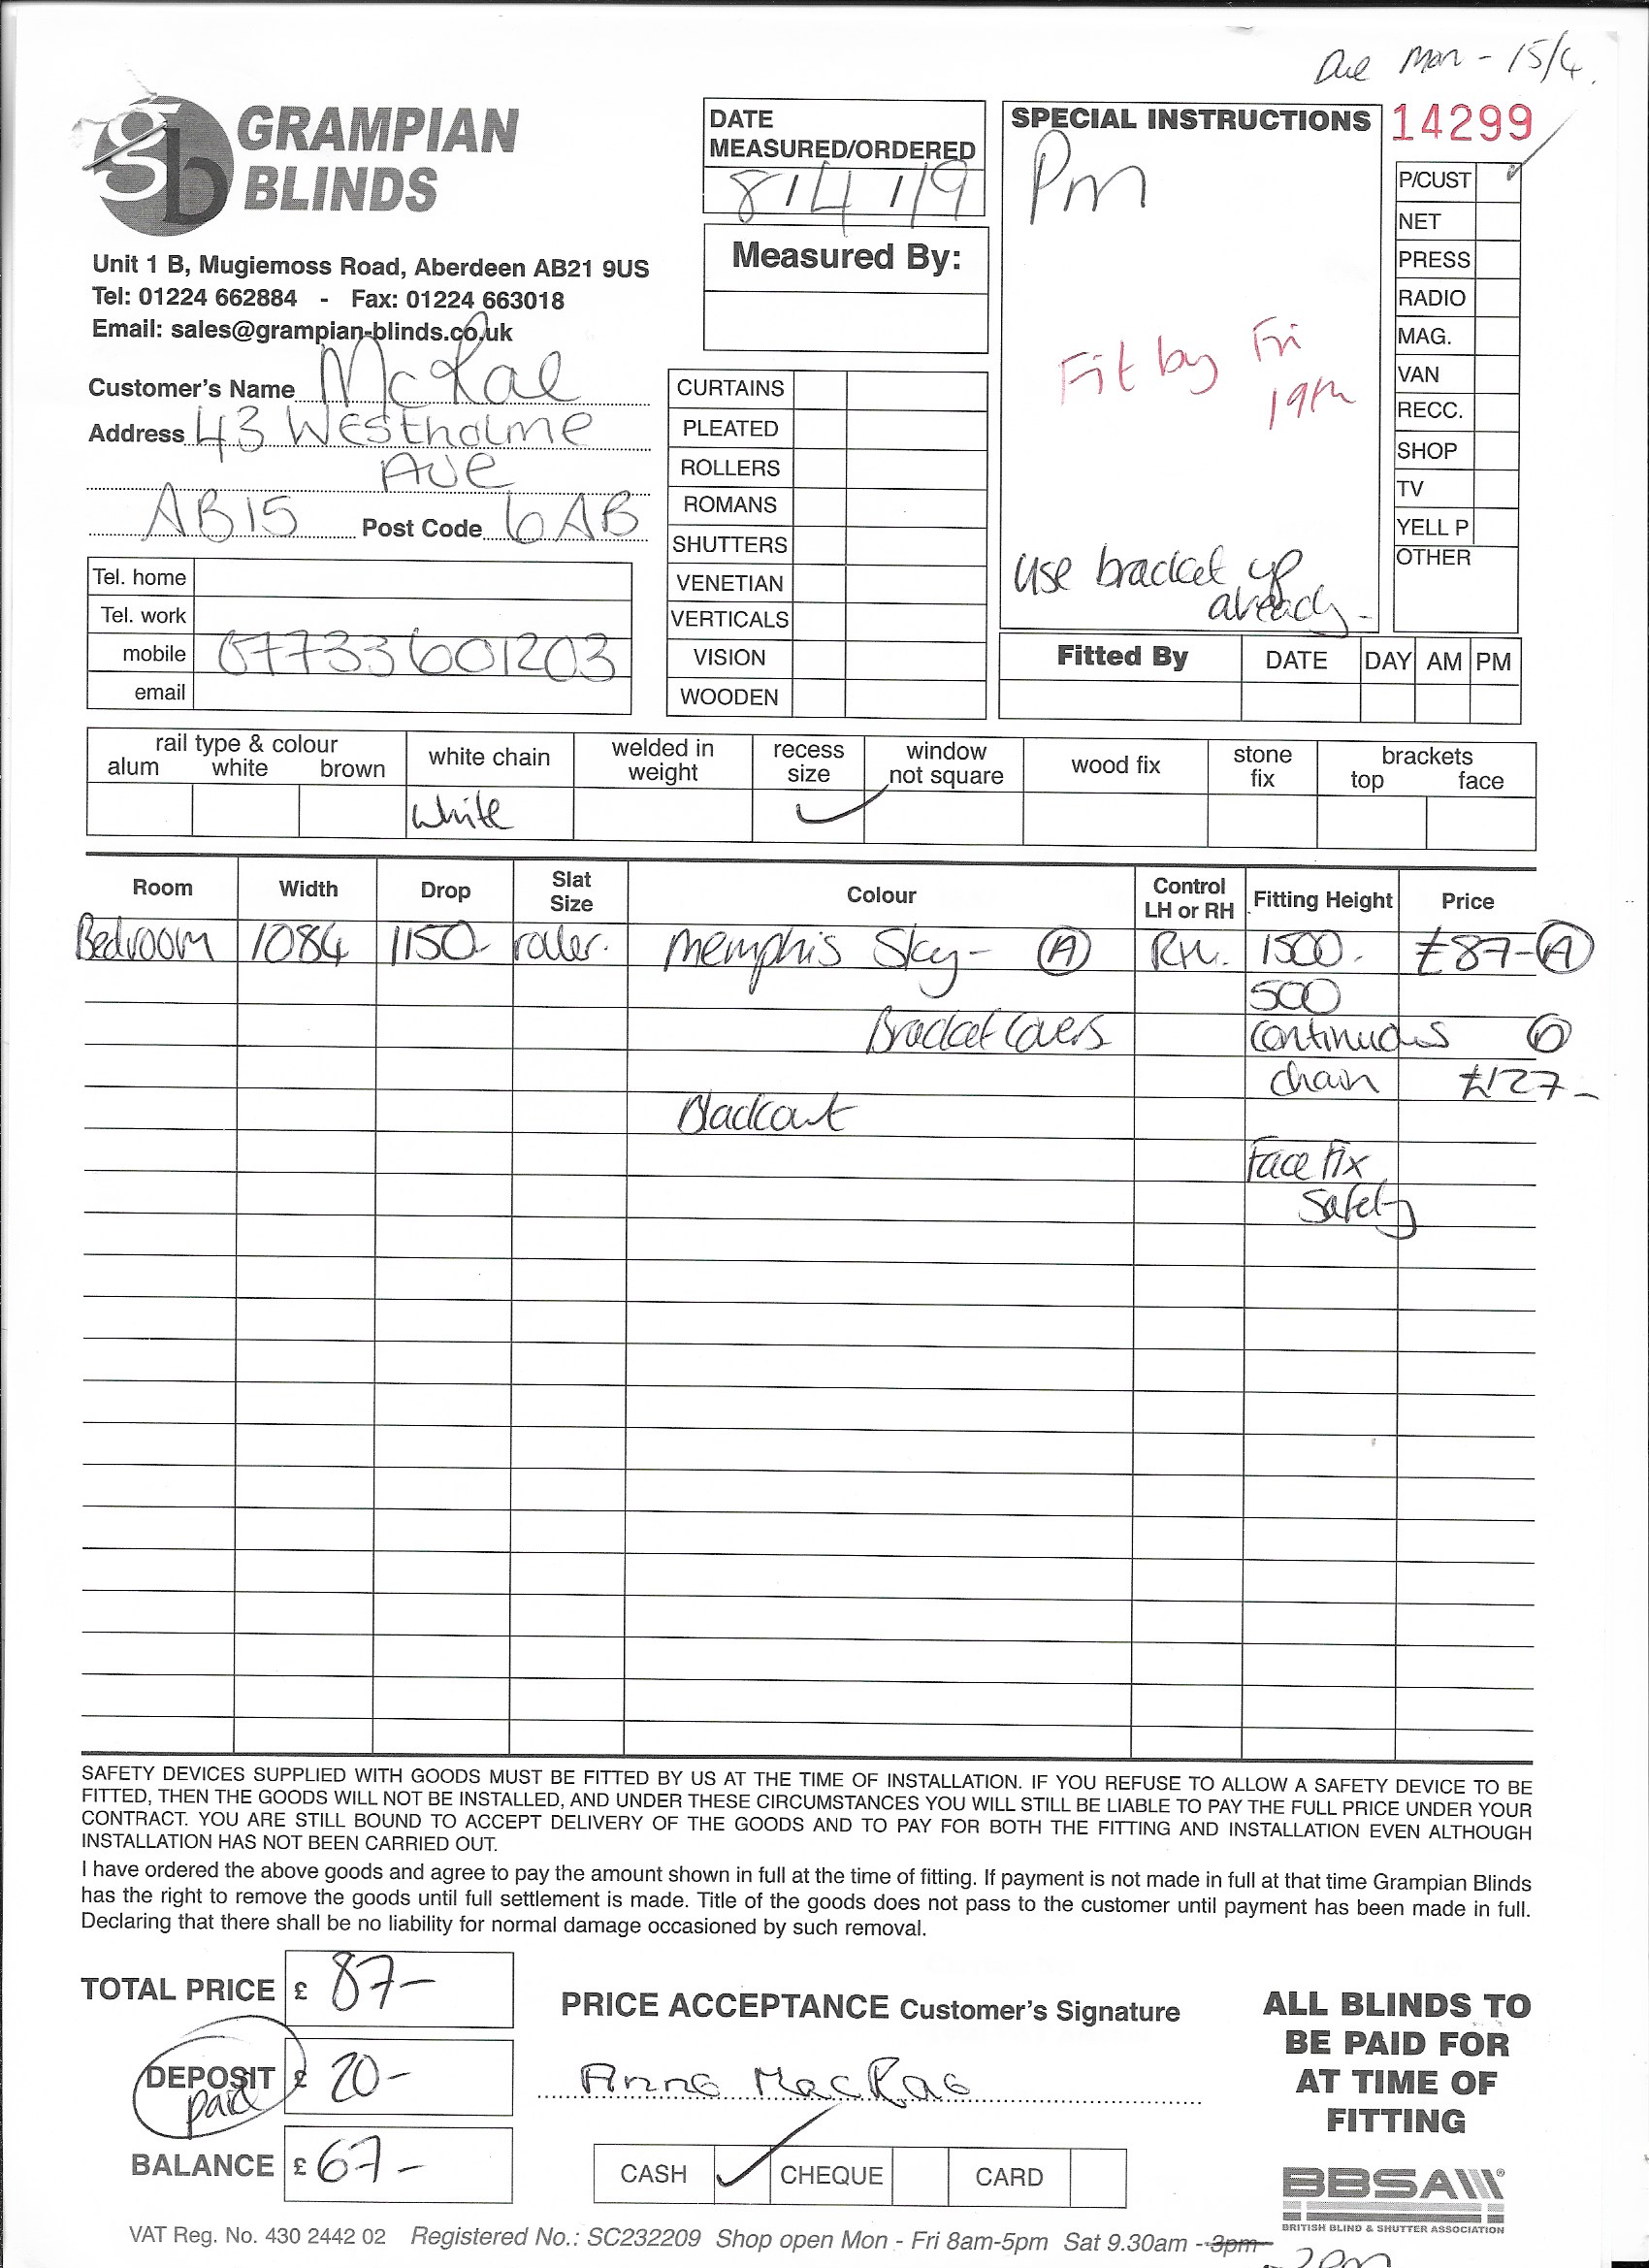 Due Mon - 15/4.
GRAMPIAN
BLINDS
gb
Unit 1 B, Mugiemoss Road, Aberdeen AB21 9US
Tel: 01224 662884 - Fax: 01224 663018
Email: sales@grampian-blinds.co.uk
Customer's Name McRae
Address 43 Westholme
Ave
AB15 Post Code 6AB
Tel. home
Tel. work
mobile 07733601203
email
DATE
MEASURED/ORDERED
8/4/19
Measured By:
CURTAINS
PLEATED
ROLLERS
ROMANS
SHUTTERS
VENETIAN
VERTICALS
VISION
WOODEN
SPECIAL INSTRUCTIONS
Pm
Fit by Fri
19th
use bracket up
already -
14299
P/CUST
NET
PRESS
RADIO
MAG.
VAN
RECC.
SHOP
TV
YELL P
OTHER
Fitted By DATE DAY AM PM
rail type & colour
alum white brown
white chain
White
welded in
weight
recess
size
window
not square
wood fix
stone
fix
brackets
top face
Room Width Drop Slat Size Colour Control LH or RH Fitting Height Price
Bedroom 1084 1150- roller. Memphis Sky- A RH. 1500. £87- A
500
Bracket Covers continuous
chain £127-
Blackout
Face Fix
Safety
SAFETY DEVICES SUPPLIED WITH GOODS MUST BE FITTED BY US AT THE TIME OF INSTALLATION. IF YOU REFUSE TO ALLOW A SAFETY DEVICE TO BE
FITTED, THEN THE GOODS WILL NOT BE INSTALLED, AND UNDER THESE CIRCUMSTANCES YOU WILL STILL BE LIABLE TO PAY THE FULL PRICE UNDER YOUR
CONTRACT. YOU ARE STILL BOUND TO ACCEPT DELIVERY OF THE GOODS AND TO PAY FOR BOTH THE FITTING AND INSTALLATION EVEN ALTHOUGH
INSTALLATION HAS NOT BEEN CARRIED OUT.
I have ordered the above goods and agree to pay the amount shown in full at the time of fitting. If payment is not made in full at that time Grampian Blinds
has the right to remove the goods until full settlement is made. Title of the goods does not pass to the customer until payment has been made in full.
Declaring that there shall be no liability for normal damage occasioned by such removal.
TOTAL PRICE £ 87-
DEPOSIT £ 20-
paid
BALANCE £ 67-
PRICE ACCEPTANCE Customer's Signature
Anna MacRae
CASH CHEQUE CARD
ALL BLINDS TO
BE PAID FOR
AT TIME OF
FITTING
BBSA
BRITISH BLIND & SHUTTER ASSOCIATION
VAT Reg. No. 430 2442 02 Registered No.: SC232209 Shop open Mon - Fri 8am-5pm Sat 9.30am - 3pm
2pm